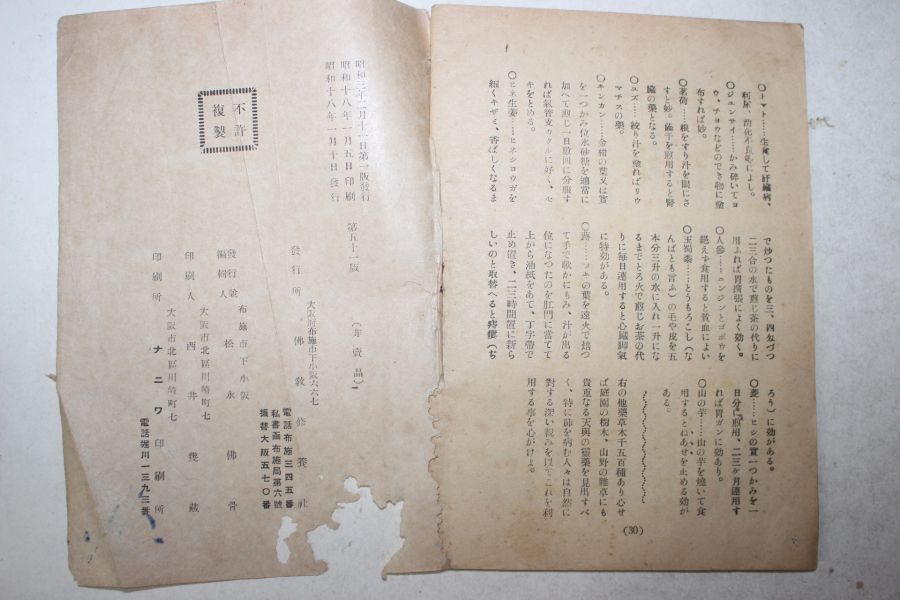 〇トマト……生食して肝臟病、
利尿、消化不良等によし。
〇ジュンサイ……かみ碎いてヨ
ウ、チョウなどのでき物に塗
布すれば妙。
〇茗荷……根をすり汁を眼にさ
すと妙。莖干を煎用すると腎
臟の藥となる。
〇ユズ……絞り汁を塗ればリウ
マチスの藥。
〇キンカン……金柑の葉又は實
を一つかみ位氷砂糖を適當に
加へて煎じ一日數回に分服す
れば氣管支カタルに好く、セ
キをとめる。
〇ヒネ生姜……ヒネショウガを
細くキザミ、香ばしくなるま
で炒つたものを三、四匁づつ
二三合の水で煎じ茶の代りに
用ふれば胃擴張によく効く。
〇人參……ニンジンとゴボウを
絕えず食用すると貧血によい
〇玉蜀黍……とうもろこし(な
んばとも言ふ)の毛や皮を五
本分三升の水に入れ一升にな
るまでとろ火で煎じお茶の代
りに毎日連用すると心臟脚氣
に特効がある。
〇蕗……フキの葉を遠火で焙つ
て手で軟かにもみ、汁が出る
位になつたのを肛門に當てて
上から油紙をあて、丁字帶で
止め置き、二三時間置に新ら
しいのと取替へると痔瘻(ぢ
ろう)に効がある。
〇菱……ヒシの實一つかみを一
日分に煎用、二三ケ月連用す
れば胃ガンに効あり。
〇山の芋……山の芋を燒いて食
用するとねあせを止める効が
ある。
右の他藥草木千五百種あり心せ
ば庭園の樹木、山野の雜草にも
貴重なる天與の靈藥を見出すべ
く、特に肺を病む人々は自然に
對する深い親みを以てこれを利
用する事を心がけよ。
(30)
昭和三年二月十一日第一版發行
昭和十八年一月五日印刷
昭和十八年一月十日發行
第五十一版
(非賣品)
不許
複製
發行所
大阪府布施市下小阪六六七
佛教修養社
電話布施三四五番
私書函布施局第六號
振替大阪五七〇番
發行人兼
編輯人
布施市下小阪
松永佛骨
印刷人
大阪市北區川崎町七
西井幾藏
印刷所
大阪市北區川崎町七
ナニワ印刷所
電話堀川一三九三番